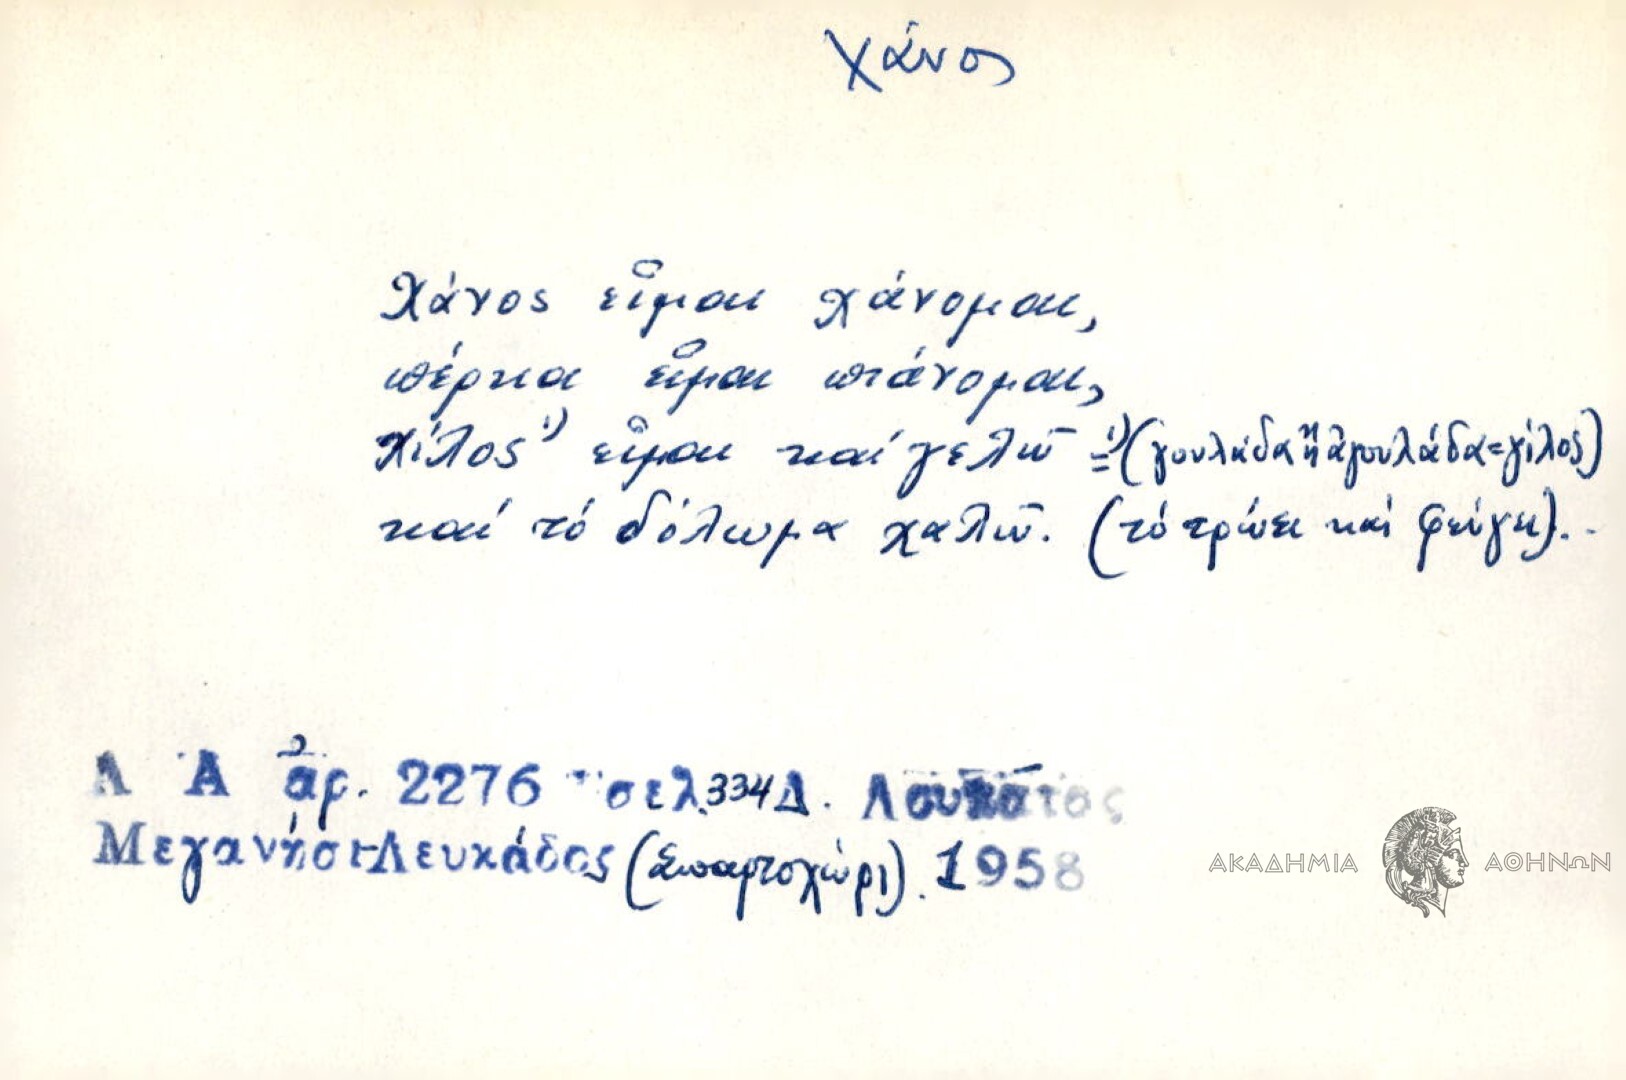 χάνος
Χάνος εἶμαι χάνομαι,
πέρκα εἶμαι πιάνομαι,
χίλος¹⁾ εἶμαι καί γελῶ =¹⁾(γουλάδα ἤ ἀγουλάδα=γίλος)
καί τό δόλωμα χαλῶ. (τό τρώει καί φεύγει)..
Λ Α ἀρ. 2276 σελ. 334 Δ. Λουκάτος
Μεγανήσι-Λευκάδος (Σπαρτοχώρι). 1958
ΑΚΑΔΗΜΙΑ ΑΘΗΝΩΝ